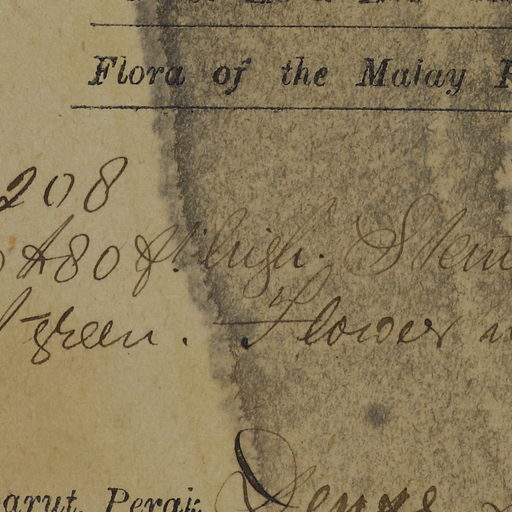 Flora of the Malay P
208
80 ft. high. Stem
green. Flower
arut, Perak. Dense